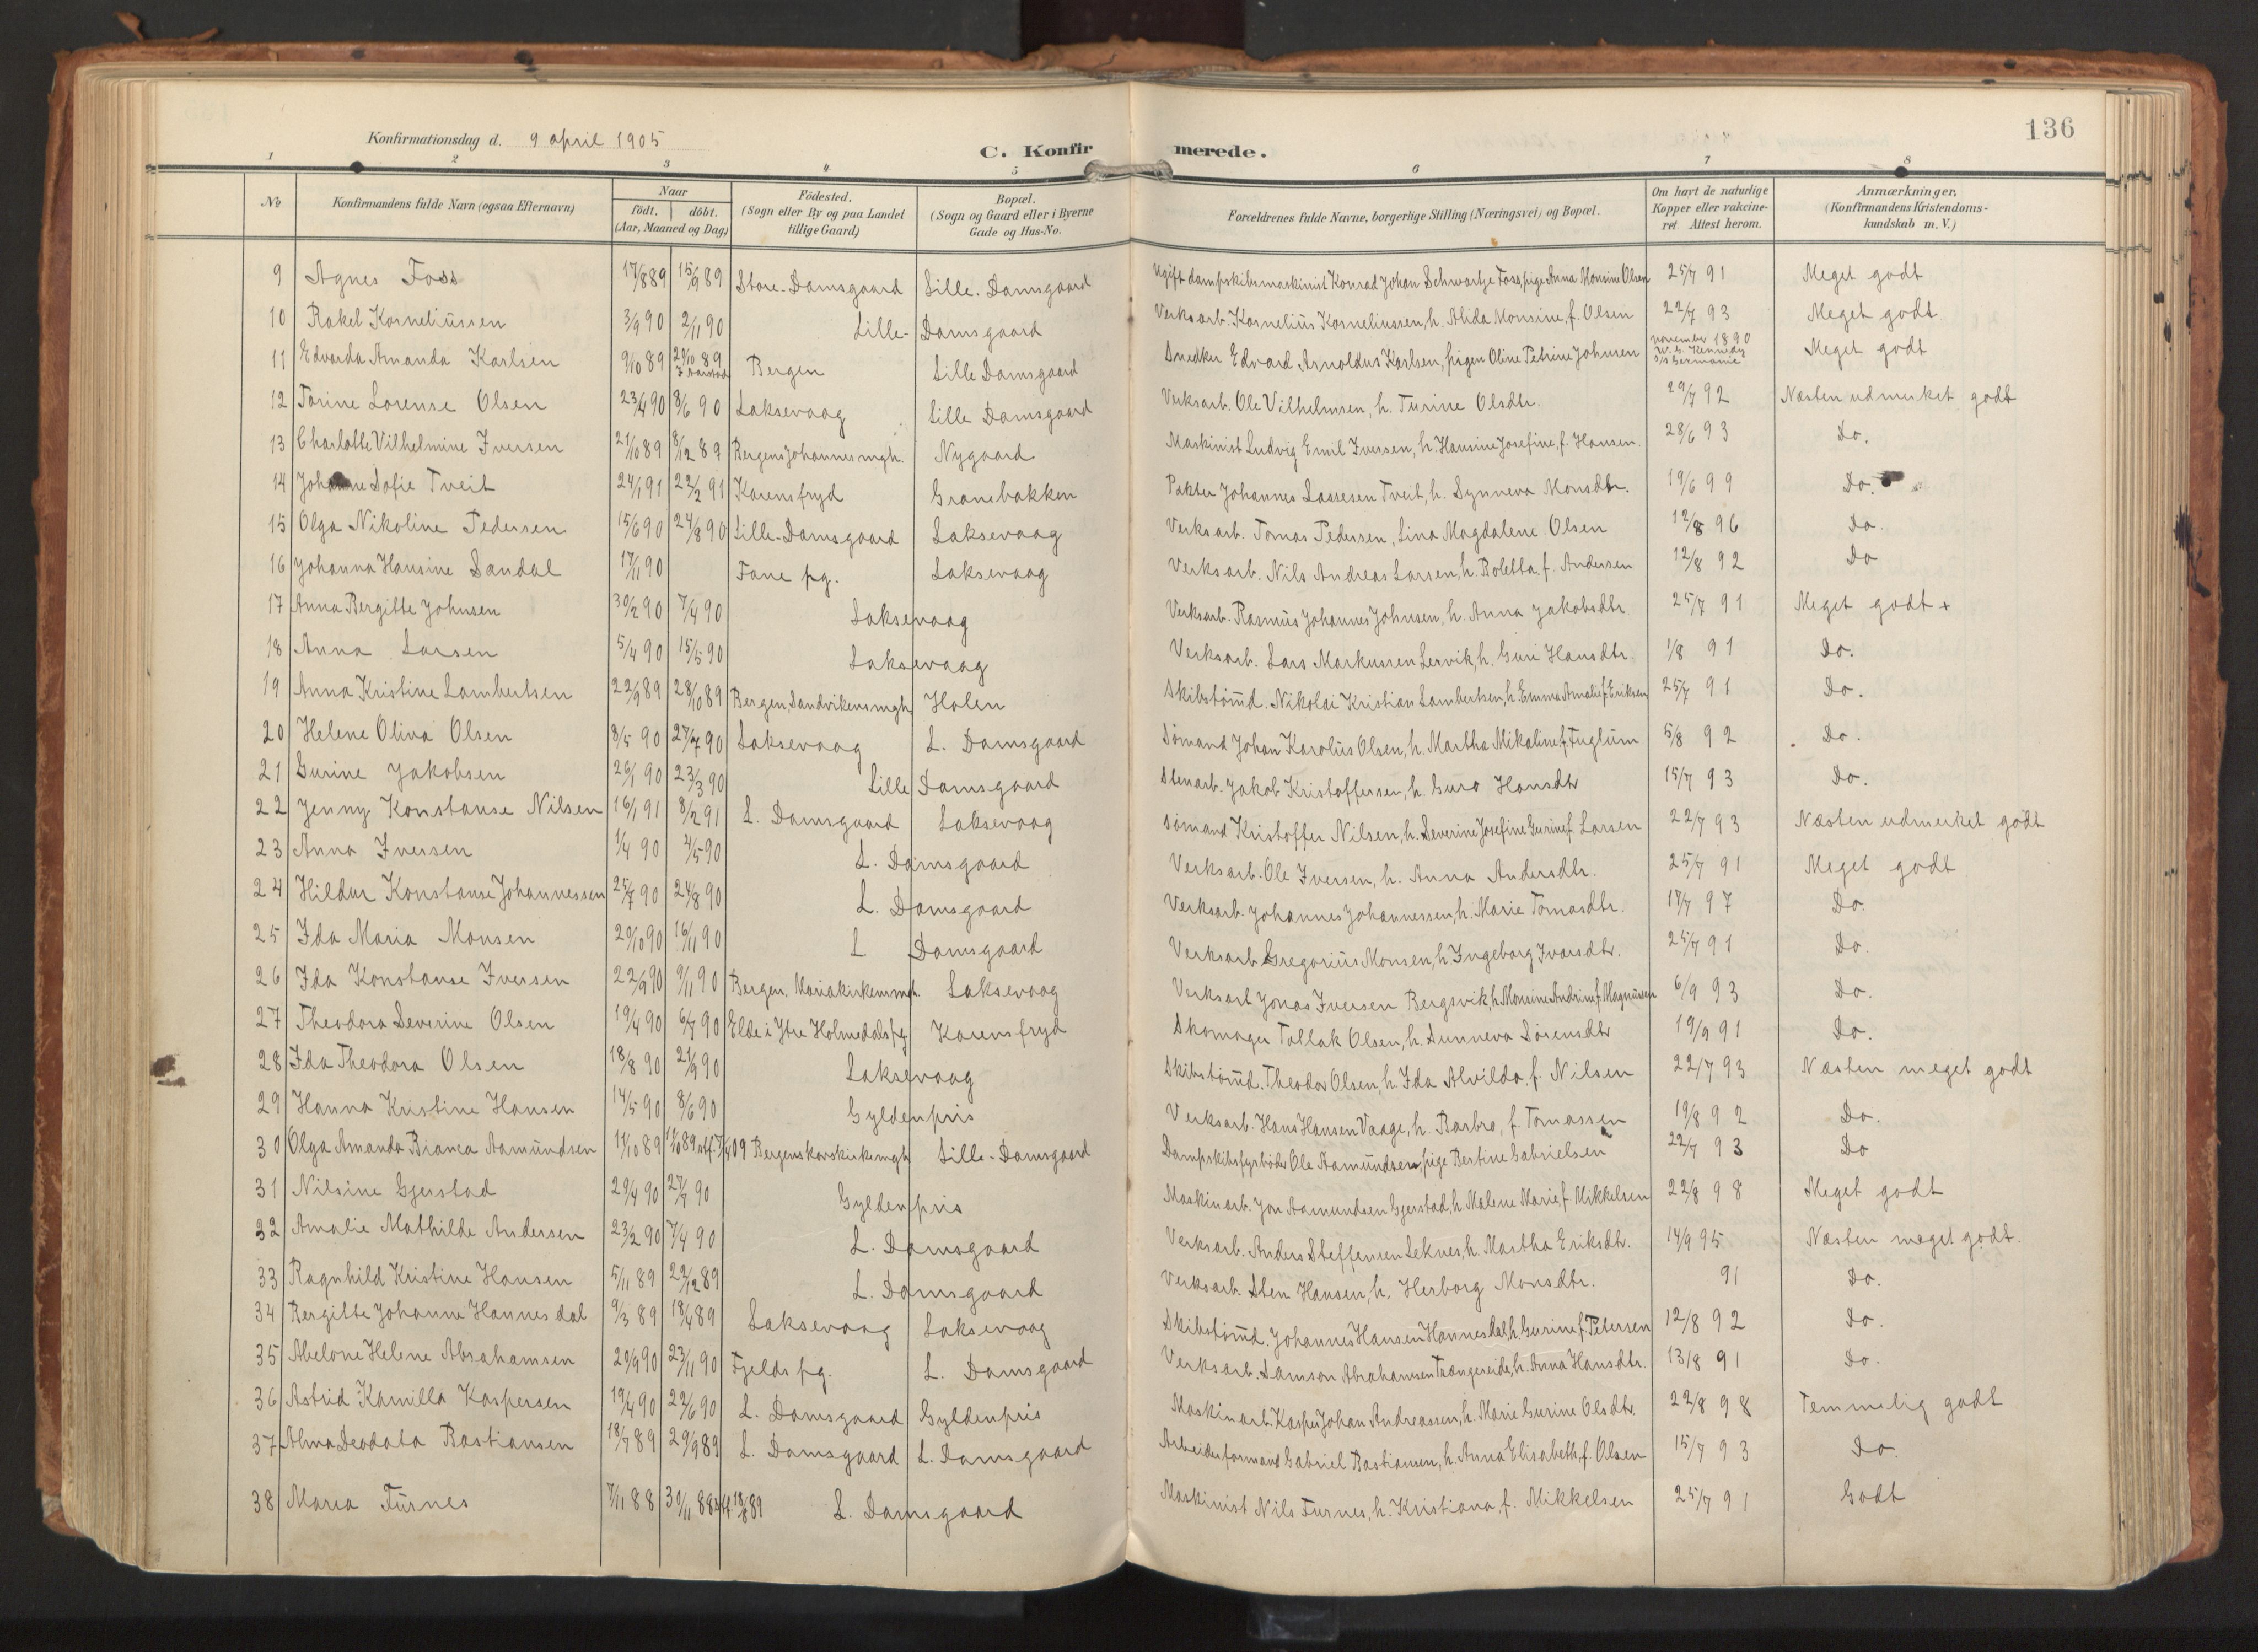 136
Konfirmationsdag d. 9 april 1905
C. Konfirmerede.
1 2 3 4 5 6 7 8
No Konfirmandens fulde Navn (ogsaa Efternavn) Naar født. døbt. (Aar, Maaned og Dag) Födested. (Sogn eller By og paa Landet tillige Gaard) Bopæl. (Sogn og Gaard eller i Byerne Gade og Hus-No. Forældrenes fulde Navne, borgerlige Stilling (Næringsvei) og Bopæl. Om havt de naturlige Kopper eller vakcineret. Attest herom. Anmærkninger. (Konfirmandens Kristendomskundskab m. V.)
9 Agnes Foss 17/8 89 15/9 89 Store-Damsgaard Lille-Damsgaard Ugift dampskibsmaskinist Konrad Johan Schwartje Foss, pige Anna Monsine Olsen 25/7 91 Meget godt
10 Rakel Korneliussen 3/9 90 2/11 90 Lille-Damsgaard Verksarb. Kornelius Korneliussen, h. Alida Monsine, f. Olsen 22/7 93 Meget godt
11 Edvarda Amanda Karlsen 9/10 89 29/10 89 Bergen Lille Damsgaard Snedker Edvard Arnoldus Karlsen, pigen Oline Petrine Johnsen november 1890 W. G. Kennedy S/S Germanic Meget godt
12 Torine Lorense Olsen 23/4 90 8/6 90 Laksevaag Lille Damsgaard Verksarb. Ole Vilhelmsen, h. Turine Olsdtr. 29/7 92 Næsten udmerket godt
13 Charlotte Vilhelmine Iversen 21/10 89 8/12 89 Bergens Johannesmgh. Nygaard Maskinist Ludvig Emil Iversen, h. Hansine Josefine, f. Hansen. 28/6 93 Do.
14 Johanne Sofie Tveit 24/1 91 22/2 91 Karensfryd Granebakken Pakter Johannes Lassesen Tveit, h. Synneva Monsdtr. 19/6 99 Do.
15 Olga Nikoline Pedersen 15/6 90 24/8 90 Lille-Damsgaard Laksevaag Verksarb. Tomas Pedersen, Lina Magdalene Olsen 12/8 96 Do.
16 Johanna Hansine Sandal 17/11 90 Fane pg. Laksevaag Verksarb. Nils Andreas Larsen, h. Roletta, f. Andersen 12/8 92 Do
17 Anna Bergitte Johnsen 30/2 90 7/4 90 Laksevaag Verksarb. Rasmus Johannes Johnsen, h. Anna Jakobsdtr 25/7 91 Meget godt +
18 Anna Larsen 5/4 90 15/5 90 Laksevaag Verksarb. Lars Markussen Lervik, h. Guri Hansdtr. 1/8 91 Do.
19 Anna Kristine Lambertsen 22/9 89 28/10 89 Bergen, Sandvikens mgh. Holen Skibstømd. Nikolai Kristian Lambertsen, h. Emma Amalie f. Eriksen 25/7 91 Do.
20 Helene Oliva Olsen 8/5 90 27/7 90 Laksevaag L. Damsgaard Sømand Johan Karolius Olsen, h. Martha Mikaline f. Fuglum 5/8 92 Do.
21 Gurine Jakobsen 26/1 90 23/3 90 Lille Damsgaard Stenarb. Jakob Kristoffersen, h. Guro Hansdtr 15/7 93 Do.
22 Jenny Konstanse Nilsen 16/1 91 8/2 91 L. Damsgaard Laksevaag Sømand Kristoffer Nilsen, h. Severine Josefine Gurine f. Larsen 22/7 93 Næsten udmerket godt
23 Anna Iversen 1/4 90 4/5 90 L. Damsgaard Verksarb. Ole Iversen, h. Anna Andersdtr. 25/7 91 Meget godt
24 Hildur Konstanse Johannessen 25/7 90 24/8 90 L. Damsgaard Verksarb. Johannes Johannessen, h. Marie Tomasdtr. 17/7 97 Do.
25 Ida Maria Monsen 20/10 90 16/11 90 L. Damsgaard Verksarb. Gregorius Monsen, h. Ingeborg Ivarsdtr. 25/7 91 Do.
26 Ida Konstanse Iversen 22/9 90 9/11 90 Bergen, Mariakirkens mgh. Laksevaag Verksarb Jonas Iversen Bergsvik, h. Monsine Andrine f. Magnussen 6/9 93 Do.
27 Theodora Severine Olsen 19/4 90 6/7 90 Elde i Ytre Holmedals pg Karensfryd Skomager Tollak Olsen, h. Sunneva Sørensdtr 19/9 91 Do.
28 Ida Theodora Olsen 18/8 90 21/9 90 Laksevaag Skibstømd. Theodor Olsen, h. Ida Alvilda, f. Nilsen 22/7 93 Næsten meget godt
29 Hanna Kristine Hansen 14/5 90 8/6 90 Gyldenpris Verksarb. Hans Hansen Vaage, h. Barbro, f. Tomassen 19/8 92 Do.
30 Olga Amanda Bianca Aamundsen 11/10 89 Bergens Korskirkemgh Lille-Damsgaard Dampskibsfyrbøder Ole Aamundsen, pige Bertine Gabrielsen 22/7 93 Do
31 Nilsine Gjerstad 29/4 90 27/7 90 Gyldenpris Maskinarb. Jon Aamundsen Gjerstad, h. Malene Marie, f. Mikkelsen 22/8 98 Meget godt
32 Amalie Mathilde Andersen 23/2 90 7/4 90 L. Damsgaard Verksarb. Anders Steffensen Leknes, h. Martha Eriksdtr. 14/9 95 Næsten meget godt.
33 Ragnhild Kristine Hansen 5/11 89 22/12 89 L. Damsgaard Verksarb. Sten Hansen, h. Herborg Monsdtr. 91 Do.
34 Bergitte Johanne Hannesdal 9/3 89 18/4 89 Laksevaag Laksevaag Skibstømd. Johannes Hansen Hannesdal h. Gurine f. Petersen 12/8 92 Do.
35 Abelone Helene Abrahamsen 20/9 90 23/11 90 Fjelds pg. L. Damsgaard Verksarb. Samson Abrahamsen Trængereide, h. Anna Hansdtr. 13/8 91 Do.
36 Astrid Kamilla Kaspersen 19/4 90 22/6 90 L. Damsgaard Gyldenpris Maskinarb. Kasper Johan Andreassen, h. Marie Gurine Olsdtr. 22/8 98 Temmelig godt
37 Alma Deodata Bastiansen 18/7 89 29/9 89 L. Damsgaard L. Damsgaard Arbeidsformand Gabriel Bastiansen, h. Anna Elisabeth, f. Olsen 15/7 93 Do.
38 Maria Furnes 7/11 88 30/11 88 L. Damsgaard Maskinist Nils Furnes, h. Kristiana, f. Mikkelsen 25/7 91 Godt